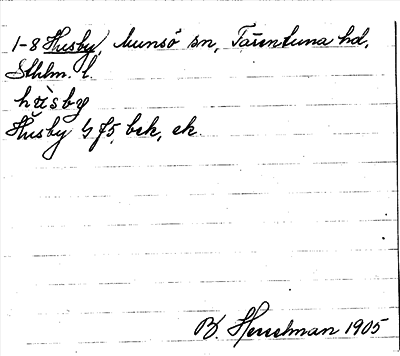 1-8 Husby, Munsö sn, Färentuna hd,
Sthlm. l.
hùsby
Husby G J5, bek, ek.
B. Hesselman 1905